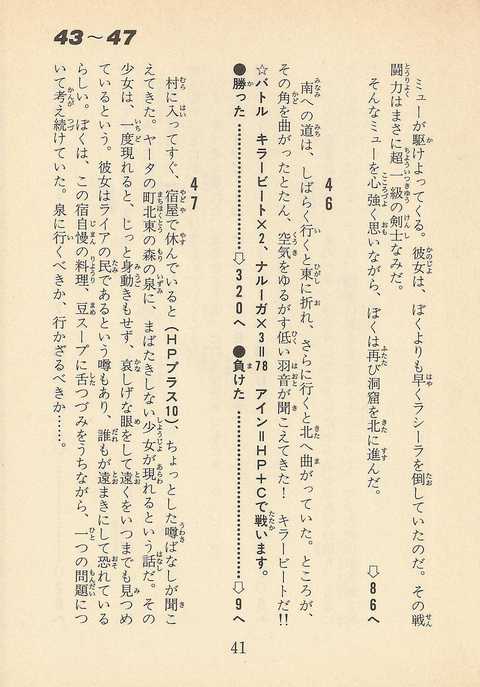 43〜47
ミューが駆けよってくる。彼女は、ぼくよりも早くラシーラを倒していたのだ。その戦
闘力はまさに超一級の剣士なみだ。
そんなミューを心強く思いながら、ぼくは再び洞窟を北に進んだ。
⇨86へ
46
南への道は、しばらく行くと東に折れ、さらに行くと北へ曲がっていた。ところが、
その角を曲がったとたん、空気をゆるがす低い羽音が聞こえてきた! キラービートだ!!
☆バトル キラービート×2、ナルーガ×3＝78 アイン＝HP＋Cで戦います。
●勝った…………⇨320へ ●負けた…………⇨9へ
47
村に入ってすぐ、宿屋で休んでいると(HPプラス10)、ちょっとした噂ばなしが聞こ
えてきた。ヤータの町北東の森の泉に、まばたきしない少女が現れるという話だ。その
少女は、一度現れると、じっと身動きもせず、哀しげな眼をして遠くをいつまでも見つめ
ているという。彼女はライアの民であるという噂もあり、誰もが遠まきにして恐れている
らしい。ぼくは、この宿自慢の料理、豆スープに舌つづみをうちながら、一つの問題につ
いて考え続けていた。泉に行くべきか、行かざるべきか……。
41